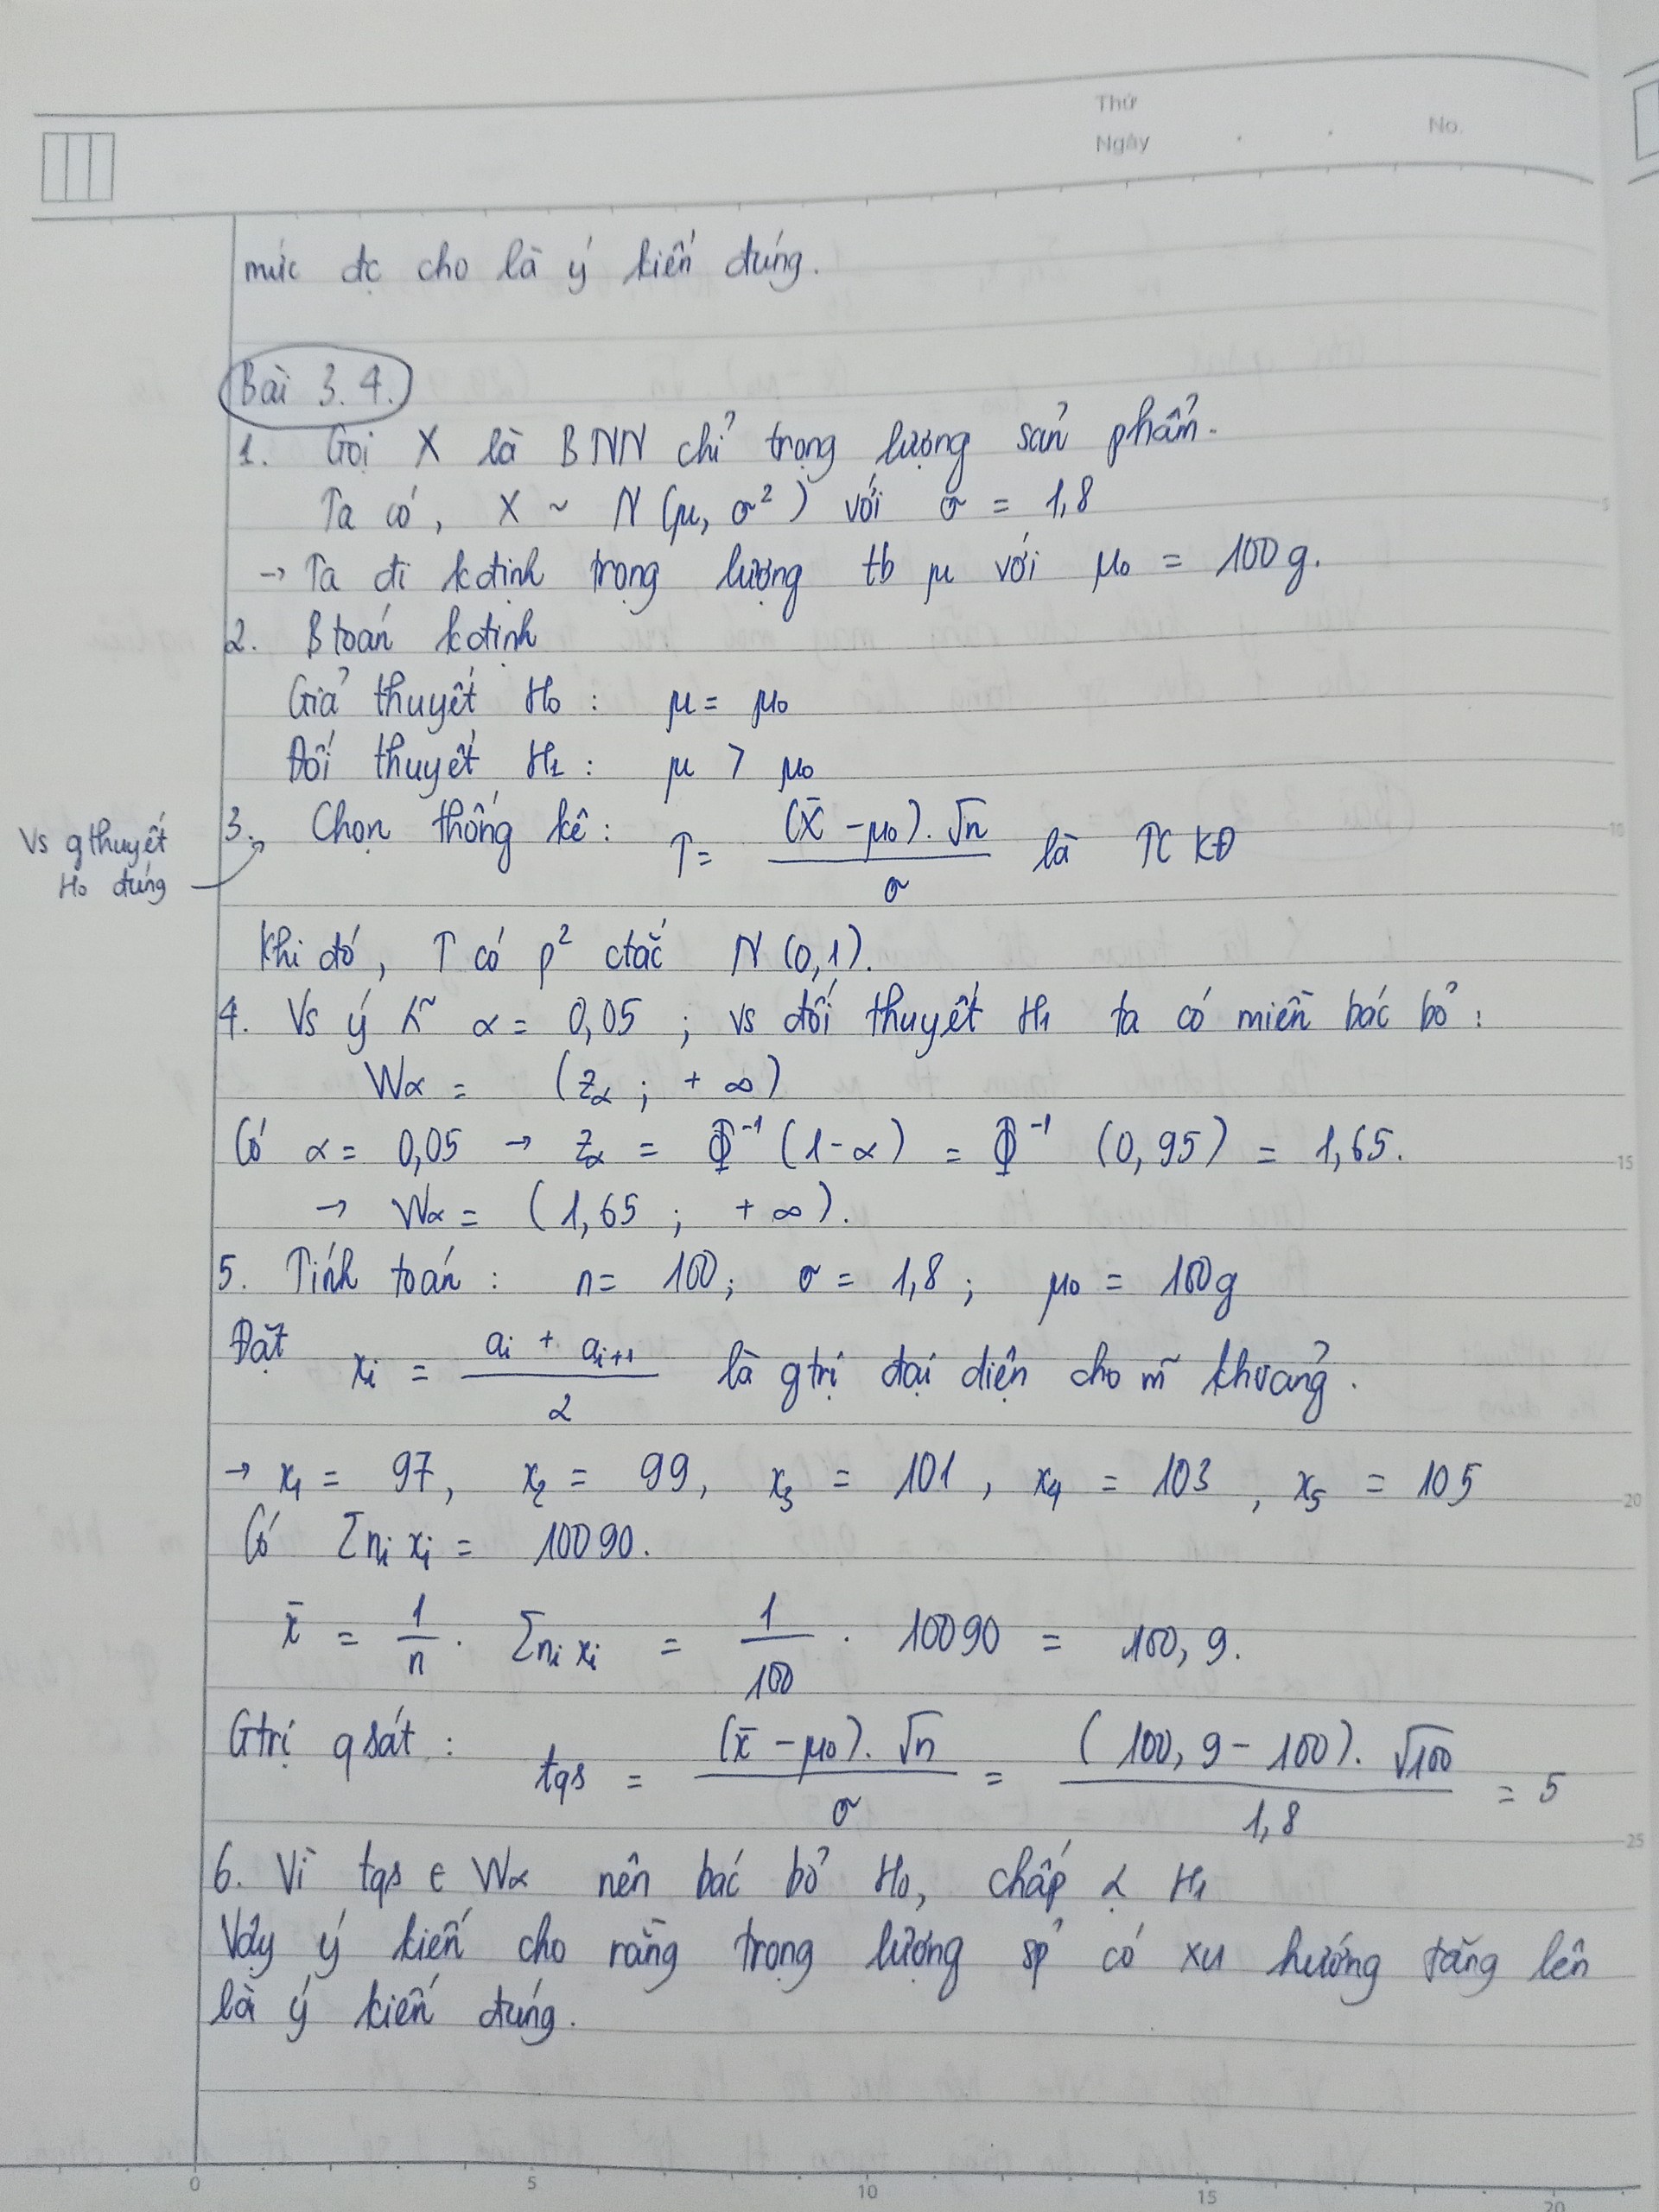 Thứ
Ngày
No.
mức đc cho là ý kiến đúng.
Bài 3.4.
1. Gọi X là BNN chỉ trọng lượng sản phẩm.
Ta có, X ~ N(μ, σ²) với σ = 1,8
→ Ta đi kđịnh trọng lượng tb μ với μ₀ = 100g.
2. Btoán kđịnh
Giả thuyết H₀ : μ = μ₀
Đối thuyết H₁ : μ > μ₀
Vs gthuyết
H₀ đúng
3. Chọn thống kê : T = (X̄ - μ₀).√n / σ là TCKĐ
Khi đó, T có p² ctắc N(0,1).
4. Vs ý n̄ α = 0,05 ; vs đối thuyết H₁ ta có miền bác bỏ :
Wα = (zα ; + ∞)
Có α = 0,05 → zα = Φ⁻¹(1-α) = Φ⁻¹ (0,95) = 1,65.
→ Wα = (1,65 ; + ∞).
5. Tính toán : n = 100; σ = 1,8 ; μ₀ = 100g
Đặt xᵢ = (aᵢ + aᵢ₊₁) / 2 là gtrị đại diện cho m̃ khoảng.
→ x₁ = 97, x₂ = 99, x₃ = 101, x₄ = 103, x₅ = 105
Có Σnᵢxᵢ = 10090.
x̄ = 1/n . Σnᵢxᵢ = 1/100 . 10090 = 100,9.
Gtrị qsát : tqs = (x̄ - μ₀).√n / σ = (100,9 - 100).√100 / 1,8 = 5
6. Vì tqs ∈ Wα nên bác bỏ H₀, chấp α H₁
Vậy ý kiến cho rằng trọng lượng sp có xu hướng tăng lên
là ý kiến đúng.
0 5 10 15 20
5
10
15
20
25